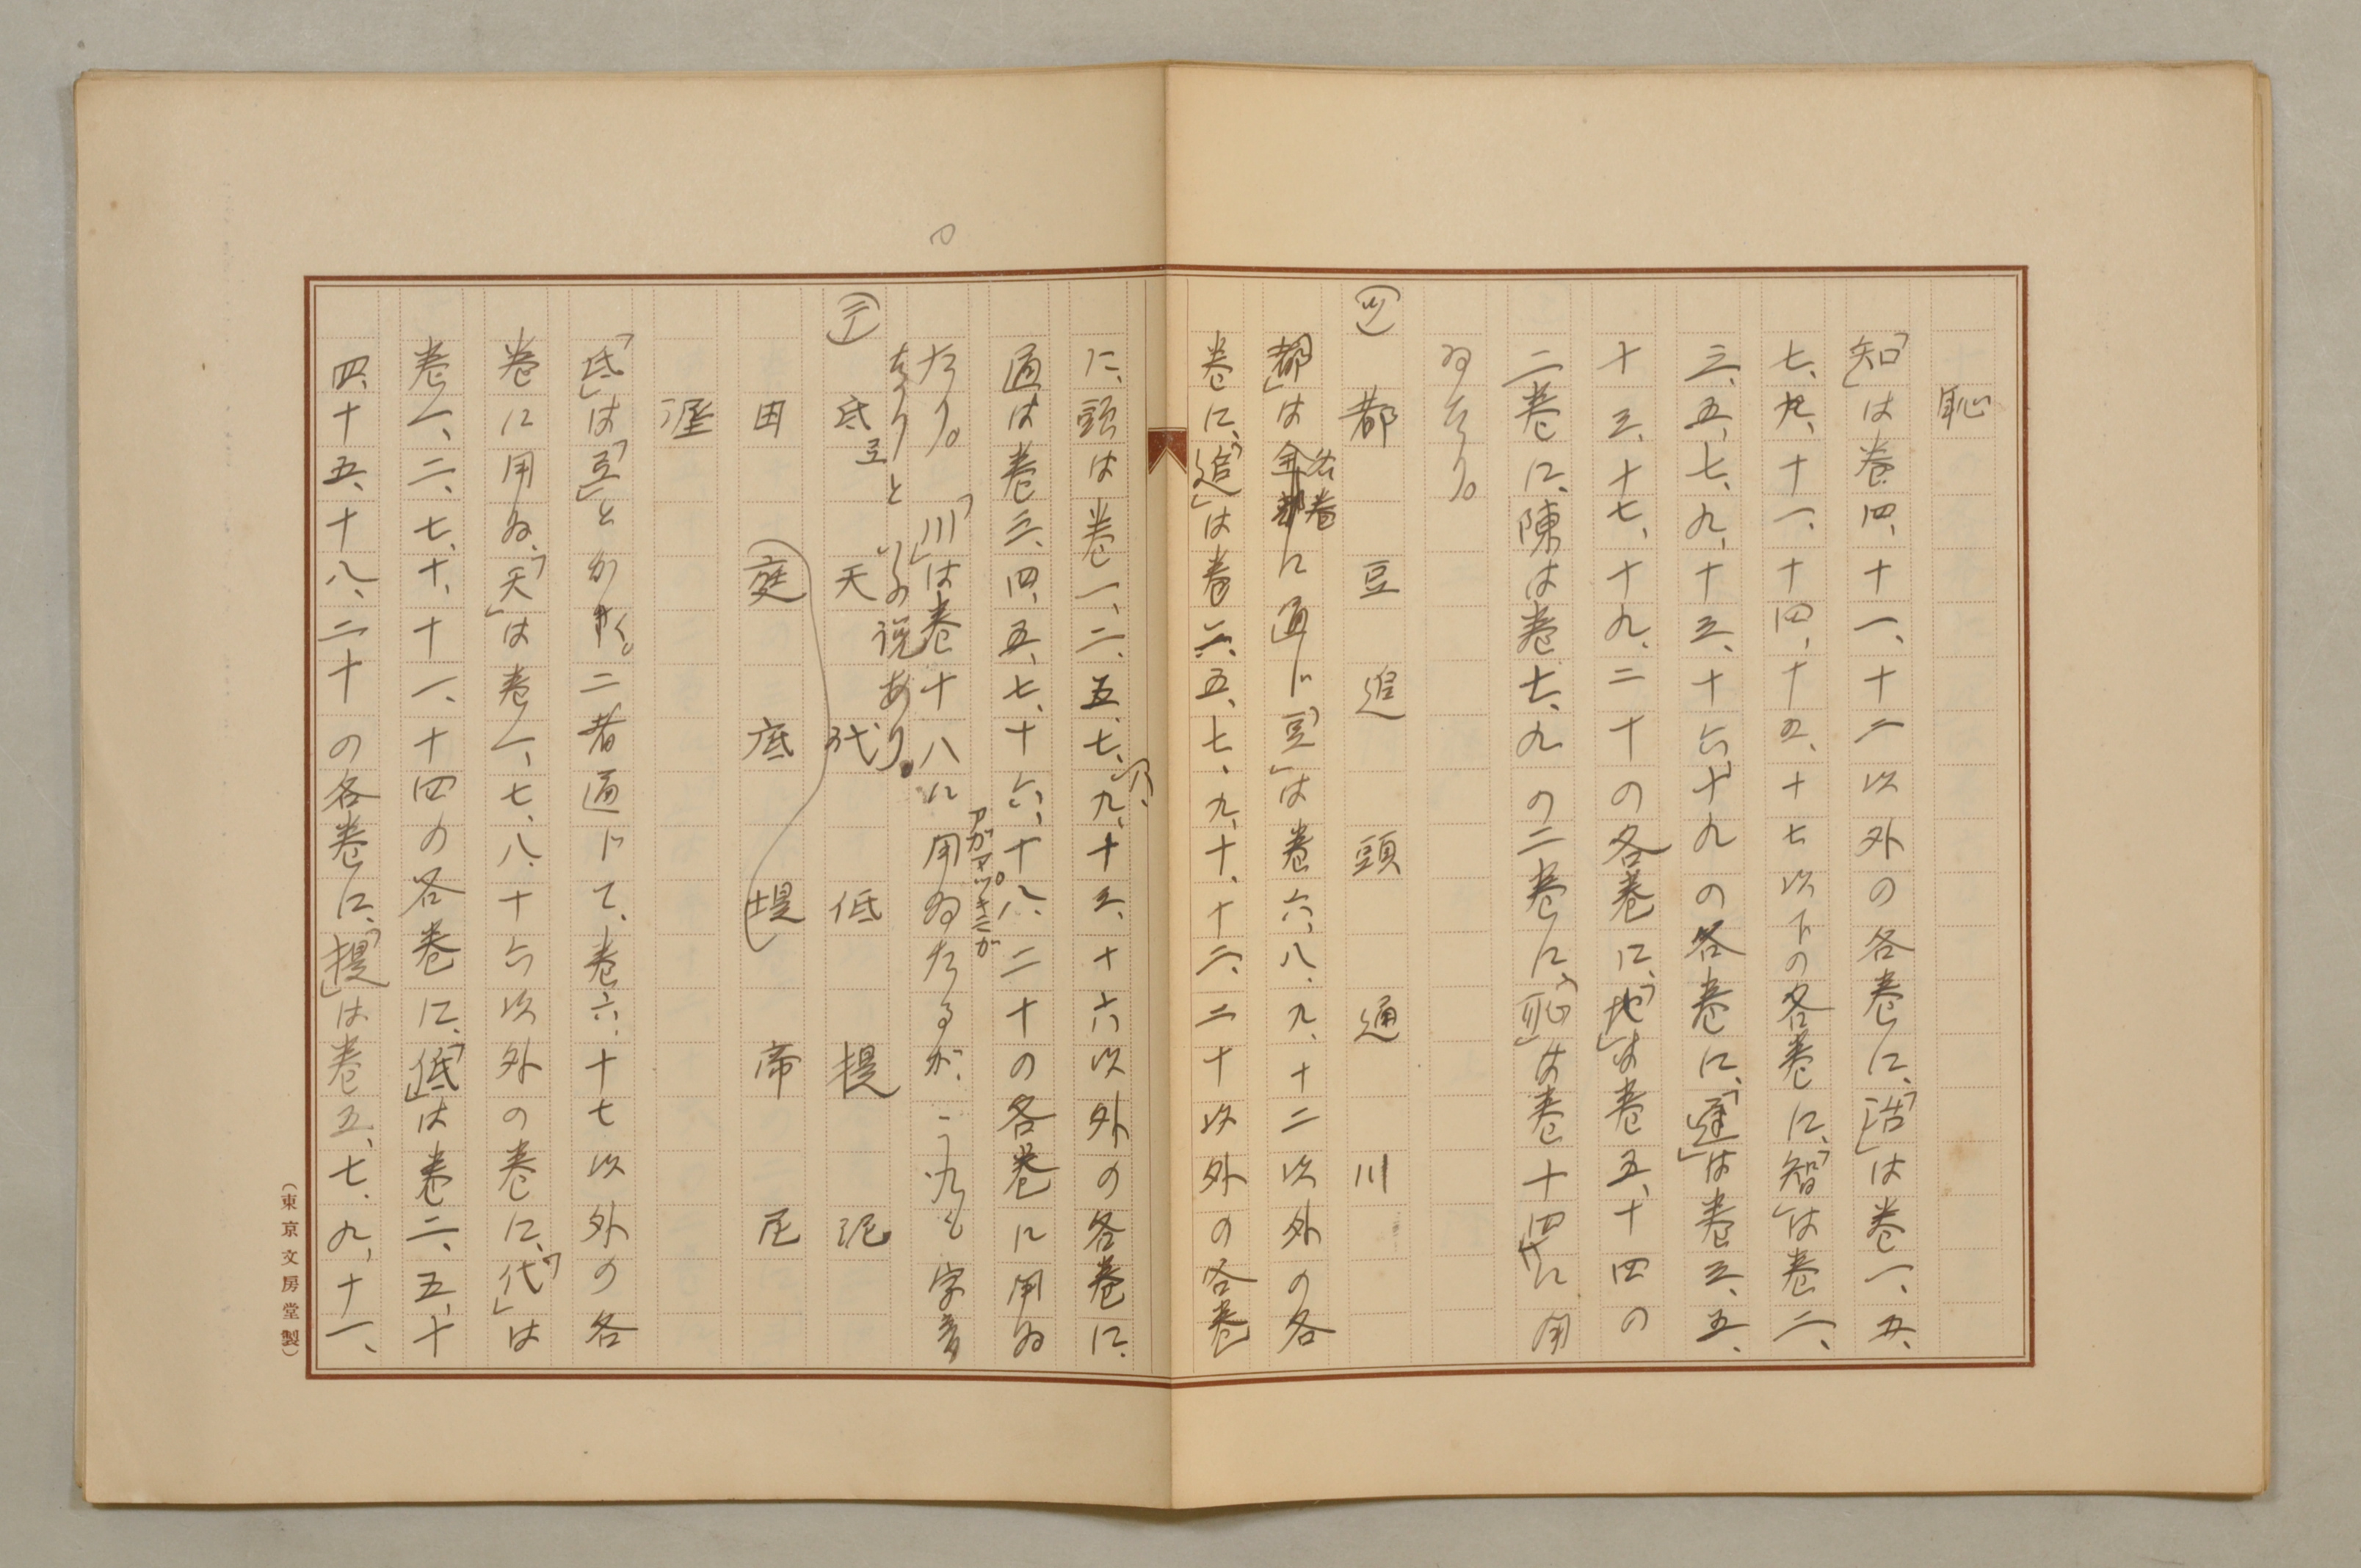 恥
「知」は巻四、十一、十二以外の各巻に、「治」は巻一、五、
七、九、十一、十四、十五、十七以下の各巻に、「智」は巻二、
三、五、七、九、十三、十六、十九の各巻に、「遅」は巻三、五、
十三、十七、十九、二十の各巻に、「地」は巻五、十四の
二巻に、陳は巻七、九の二巻に、「恥」は巻十四に用
ゐたり。
(ツ) 都 豆 追 頭 通 川
「都」は各巻に通じ「豆」は巻六、八、九、十二以外の各
巻に、「追」は巻二、五、七、九、十、十二、二十以外の各巻
に、頭は巻一、二、五、七、九、十三、十六以外の各巻に、
通は巻三、四、五、七、十六、十八、二十の各巻に用ゐ
たり。「川」は巻十八に用ゐたるが、これも字音
アガマツキミガ
なりといふ説あり。
(テ) 底 天 代 低 提 泥
弖
田 庭 底 堤 帝 氐
涯
「底」は「弖」とかく。二者通じて、巻六、十七以外の各
巻に用ゐ、「天」は巻一、七、八、十六以外の巻に、「代」は
巻一、二、七、十、十一、十四の各巻に、「低」は巻二、五、十
四、十五、十八、二十の各巻に、「提」は巻五、七、九、十一、
（東京文房堂製）